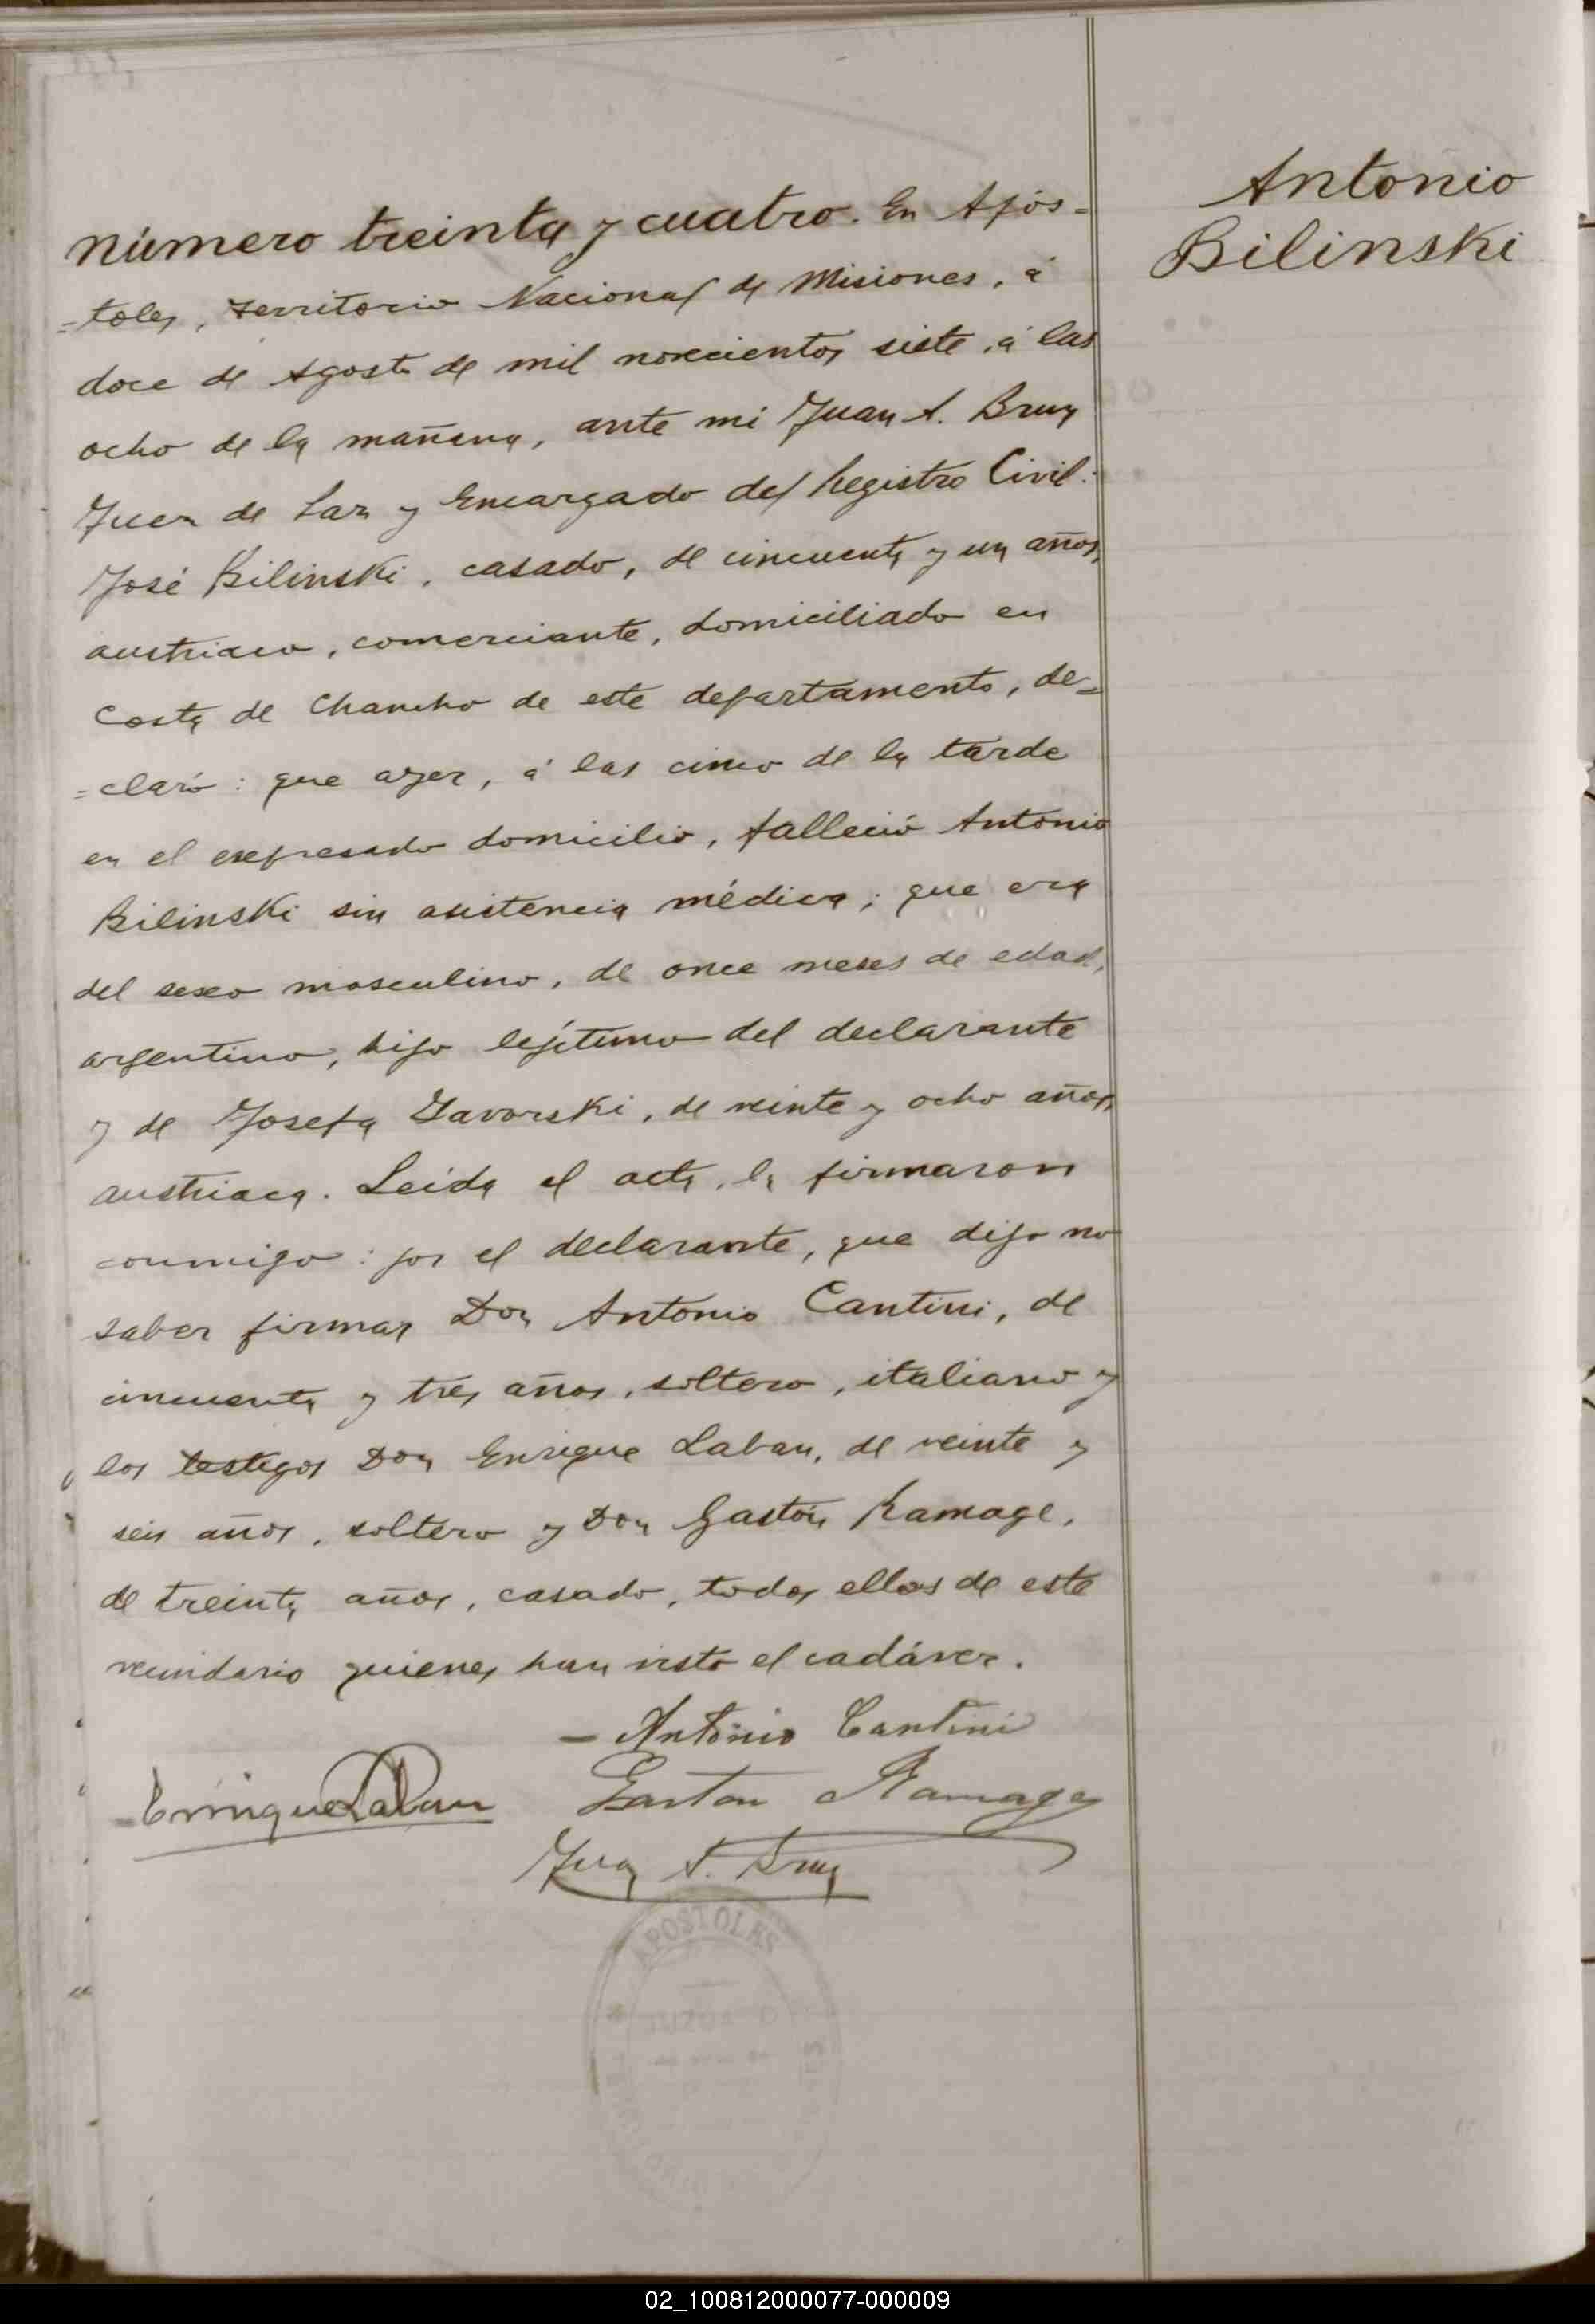 Antonio
Bilinski
Número treinta y cuatro. En Após-
=toles, Territorio Nacional de Misiones, á
doce de Agosto de mil novecientos siete, á las
ocho de la mañana, ante mi Juan A. Bruy
Juez de Paz y Encargado del Registro Civil:
José Bilinski, casado, de cincuenta y un años,
austriaco, comerciante, domiciliado en
Costa de Chancho de este departamento, de=
=claró: que ayer, á las cinco de la tarde
en el expresado domicilio, falleció Antonio
Bilinski sin asistencia médica; que era
del sexo masculino, de once meses de edad,
argentino, hijo legítimo del declarante
y de Josefa Zavorski, de veinte y ocho años,
austriaca. Leida el acta, la firmaron
conmigo: por el declarante, que dijo no
saber firmar Don Antonio Cantini, de
cincuenta y tres años, soltero, italiano y
los testigos Don Enrique Laban, de veinte y
seis años, soltero y Don Gastón Ramage,
de treinta años, casado, todos ellos de este
vecindario quienes han visto el cadáver.
- Antonio Cantini
Enrique Laban Gaston Ramage
Juan A. Bruy
APOSTOLES
02_100812000077-000009